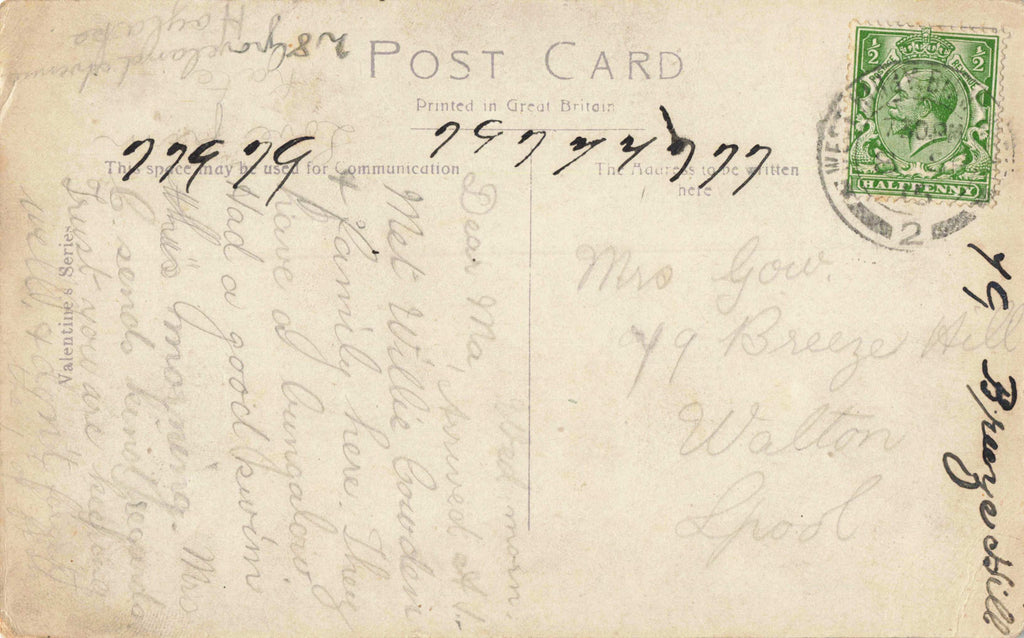 POST CARD
Printed in Great Britain
This space may be used for Communication
The Address to be written
here
Valentine's Series
HALFPENNY
½ ½
2
Wed morn.
Dear Ma, Arrived A.1.
Met Willie Cowden
& family here. They
have a bungalow
Had a good swim
this morning. Mrs
C. sends kind regards
Trust you are keeping
well, & don't
28
Hoylake
Mrs Gow.
49 Breeze Hill
Walton
Lpool
49 Breeze Hill